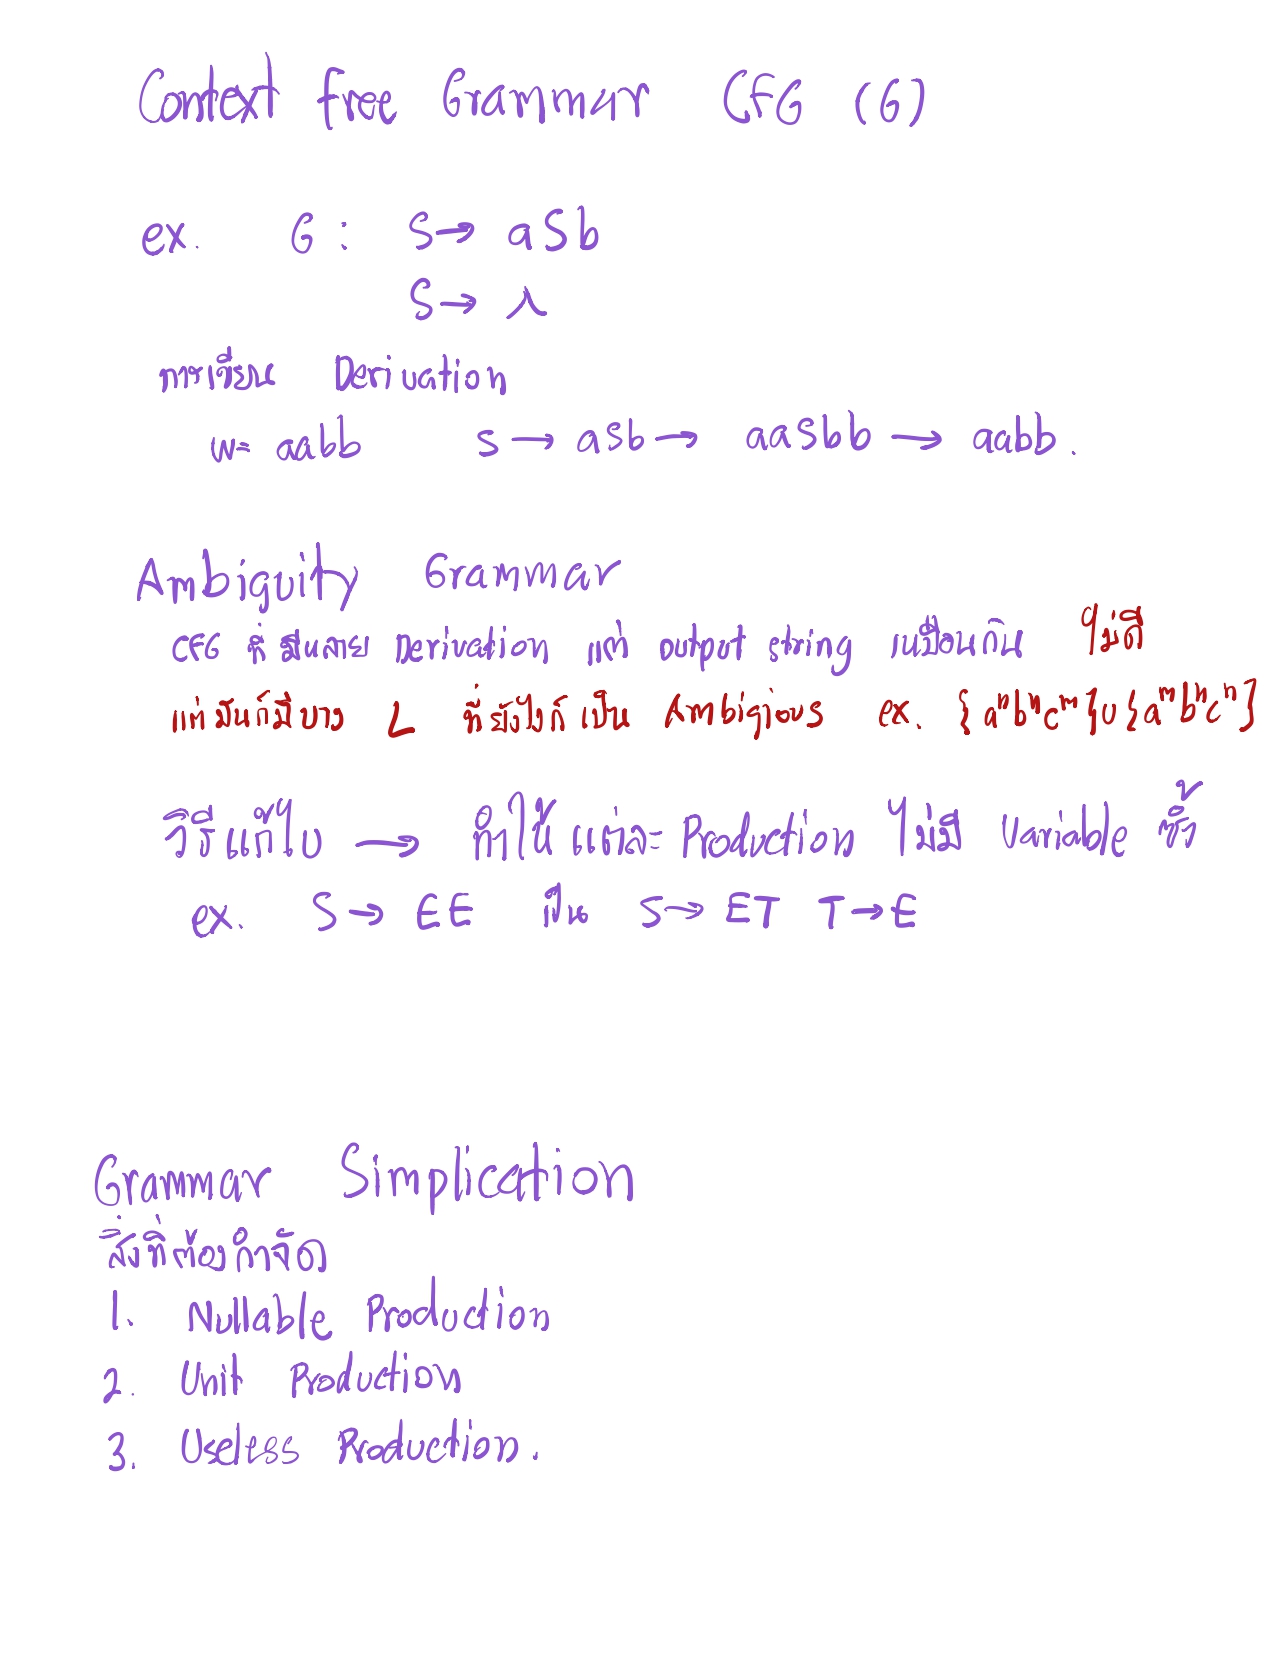 Context free Grammar CFG (G)
ex. G: S→ aSb
S→ λ
การเขียน Derivation
w= aabb S → aSb → aaSbb → aabb.
Ambiguity Grammar
CFG ที่ มีหลาย Derivation แต่ output string เหมือนกัน ไม่ดี
แต่ มันก็มีบาง L ที่ยังไงก็ เป็น Ambigious ex. {aⁿbⁿcᵐ}∪{aᵐbⁿcⁿ}
วิธีแก้ไข → ทำให้ แต่ละ Production ไม่มี Variable ซ้ำ
ex. S→ EE เป็น S→ ET T→E
Grammar Simplication
สิ่งที่ต้องกำจัด
1. Nullable Production
2. Unit Production
3. Useless Production.